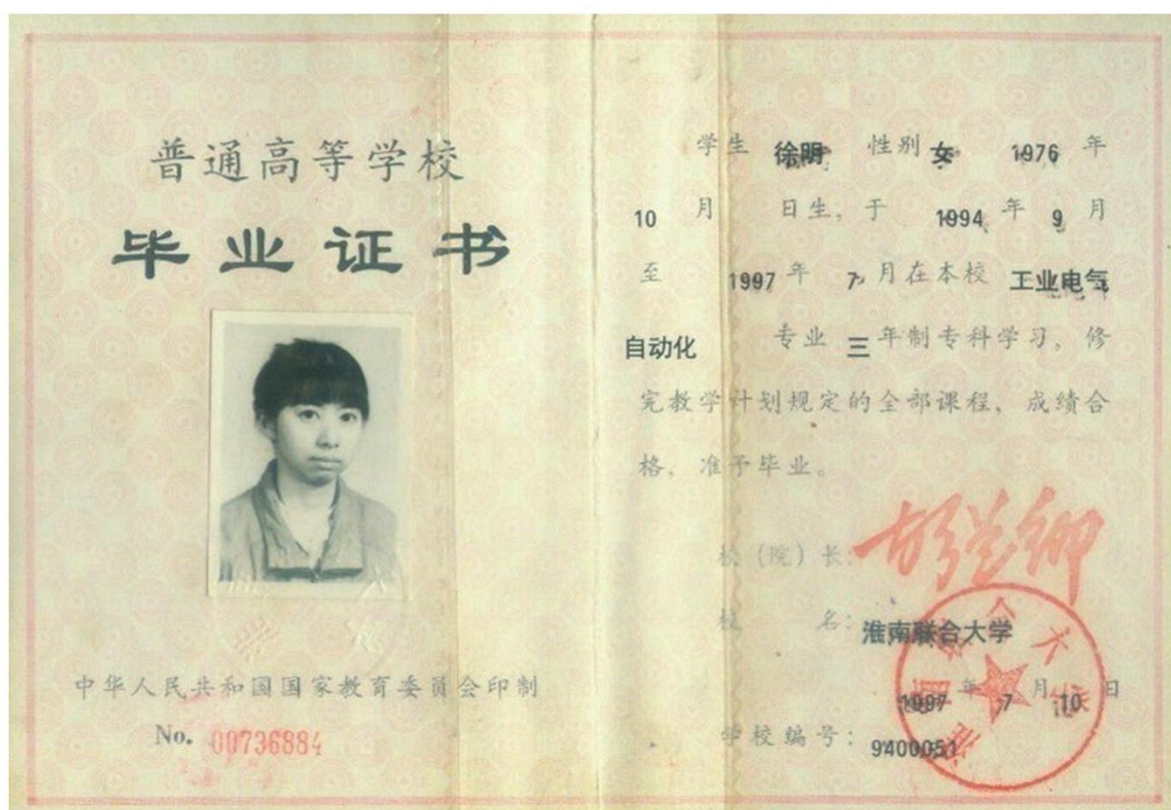 普通高等学校
毕业证书
中华人民共和国国家教育委员会印制
No. 00736884
学生 徐明 性别 女 1976 年
10 月 日生，于 1994 年 9 月
至 1997 年 7 月在本校 工业电气
自动化 专业 三 年制专科学习，修
完教学计划规定的全部课程，成绩合
格，准予毕业。
校（院）长：
校 名：淮南联合大学
1997 年 7 月 10 日
学校编号：9400051